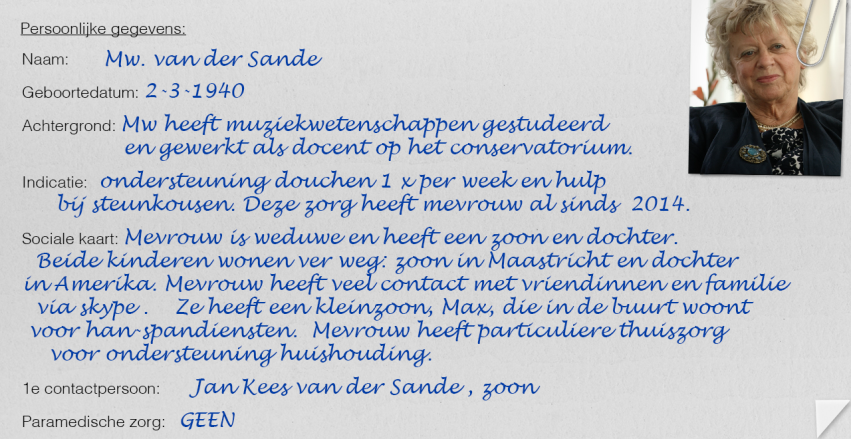 Persoonlijke gegevens:
Naam: Mw. van der Sande
Geboortedatum: 2-3-1940
Achtergrond: Mw heeft muziekwetenschappen gestudeerd
en gewerkt als docent op het conservatorium.
Indicatie: ondersteuning douchen 1 x per week en hulp
bij steunkousen. Deze zorg heeft mevrouw al sinds 2014.
Sociale kaart: Mevrouw is weduwe en heeft een zoon en dochter.
Beide kinderen wonen ver weg: zoon in Maastricht en dochter
in Amerika. Mevrouw heeft veel contact met vriendinnen en familie
via skype . Ze heeft een kleinzoon, Max, die in de buurt woont
voor han-spandiensten. Mevrouw heeft particuliere thuiszorg
voor ondersteuning huishouding.
1e contactpersoon: Jan Kees van der Sande , zoon
Paramedische zorg: GEEN